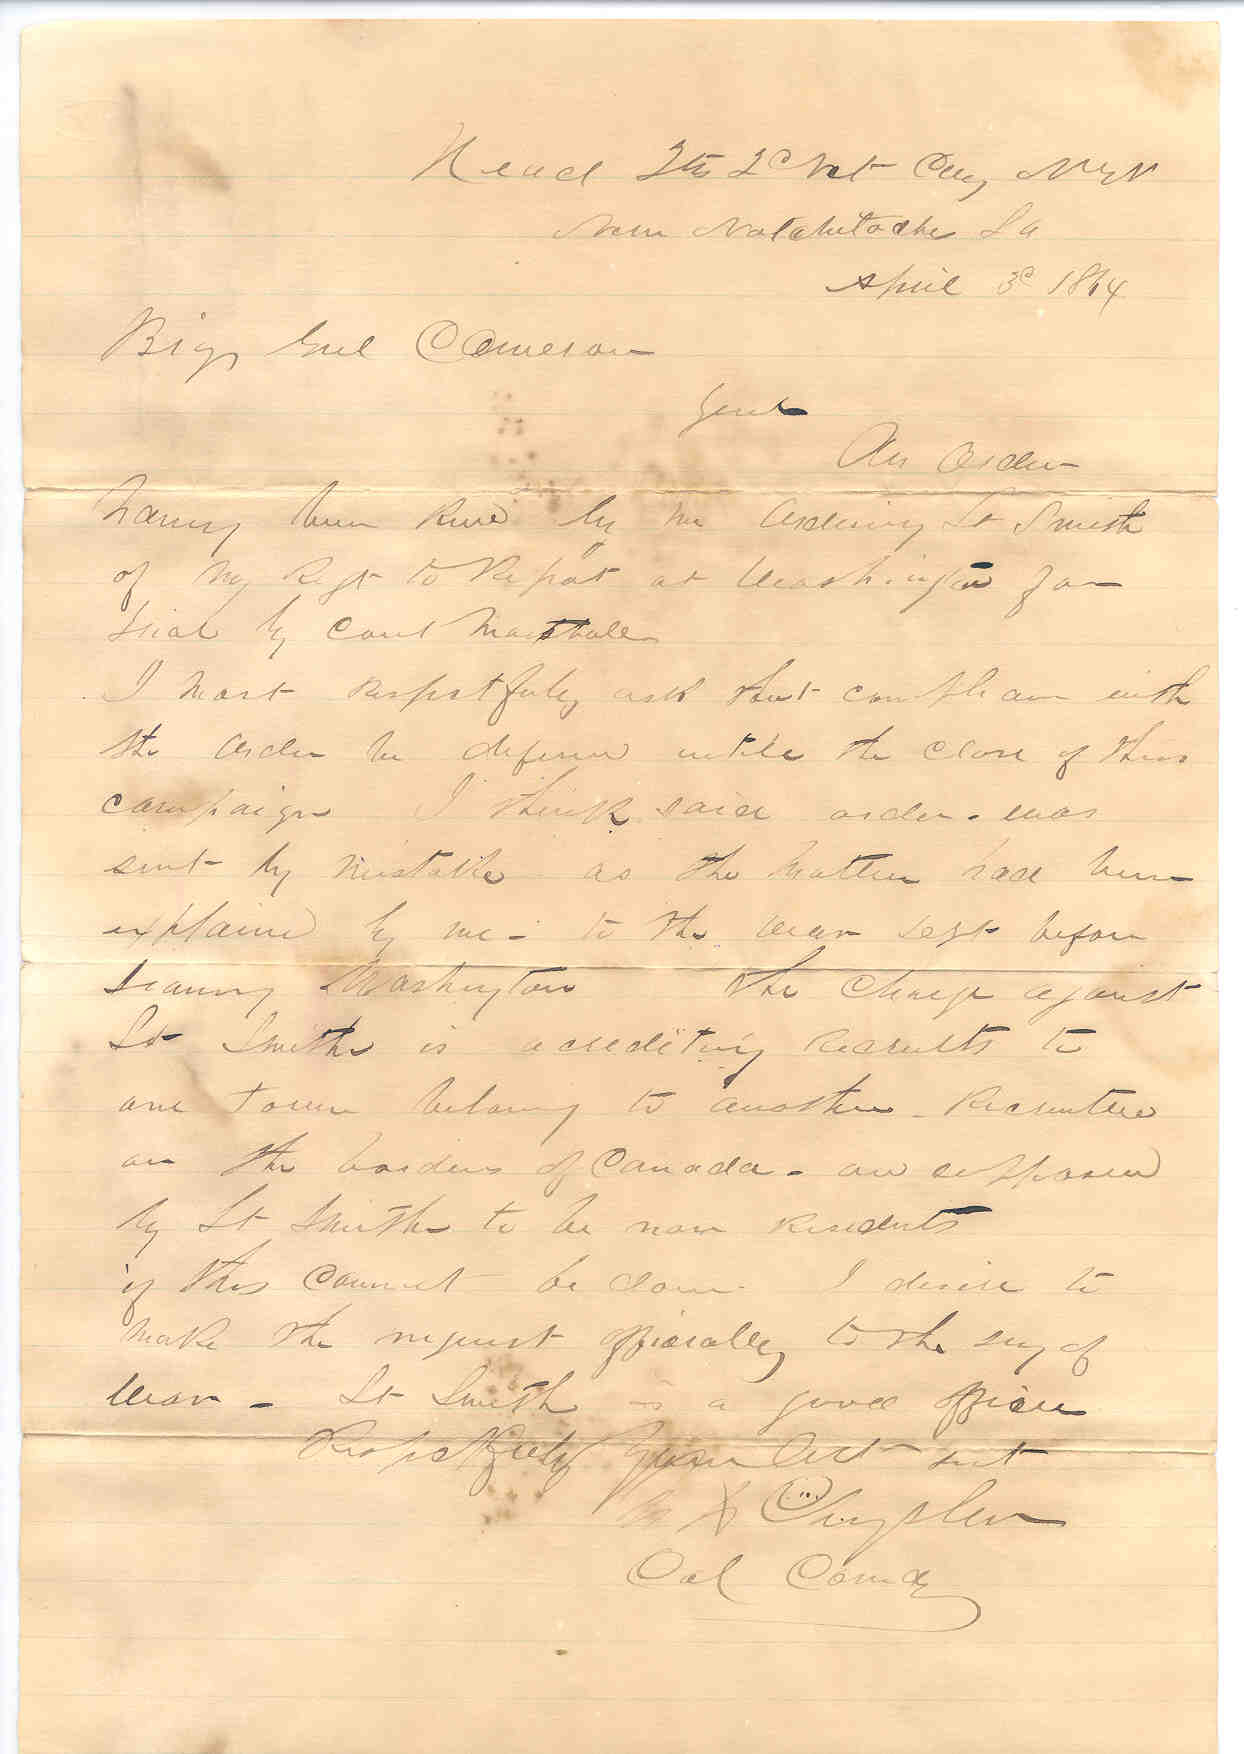 Head Qtrs 2d Vet Cavy N.Y.V
Near Natchitoches La
April 3d 1864
Brig Genl Cameron
Genl
An Order
having been Recd by me Ordering Lt Smith
of my Regt to Report at Washington for
trial by Court Marshall
I most respectfully ask that compliance with
the Order be defered untill the close of this
campaign I think said order was
sent by mistake as the matter had been
explained by me - to the War Dept before
leaving Washington The Charge against
Lt Smith is acrediting Recruits to
one town belong to another - Recruited
on the borders of Canada - and supposed
by Lt Smith to be non Residents
if this Cannot be done I desire to
make the request officially to the Secy of
War - Lt Smith is a good officer
Respectfully Your Obt svt
M H Chrysler
Col Comdg